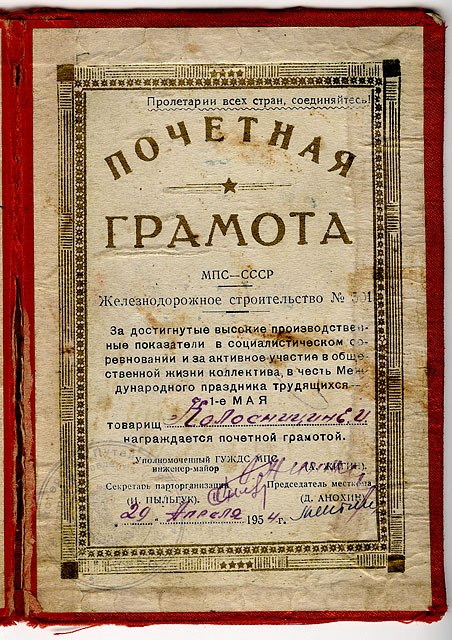 Пролетарии всех стран, соединяйтесь!
ПОЧЕТНАЯ
ГРАМОТА
МПС—СССР
Железнодорожное строительство № 501
За достигнутые высокие производствен-
ные показатели в социалистическом со-
ревновании и за активное участие в обще-
ственной жизни коллектива, в честь Меж-
дународного праздника трудящихся—
1-е МАЯ
товарищ
награждается почетной грамотой.
Уполномоченный ГУЖДС МПС
инженер-майор
Секретарь парторганизации Председатель месткома
(И. ПЫЛЬГУК). (Д. АНОХИН).
"29" Апреля 1954 г.